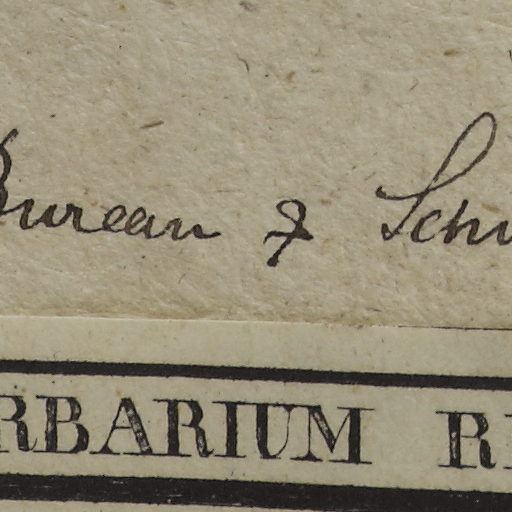 Bureau & Sch
RBARIUM R